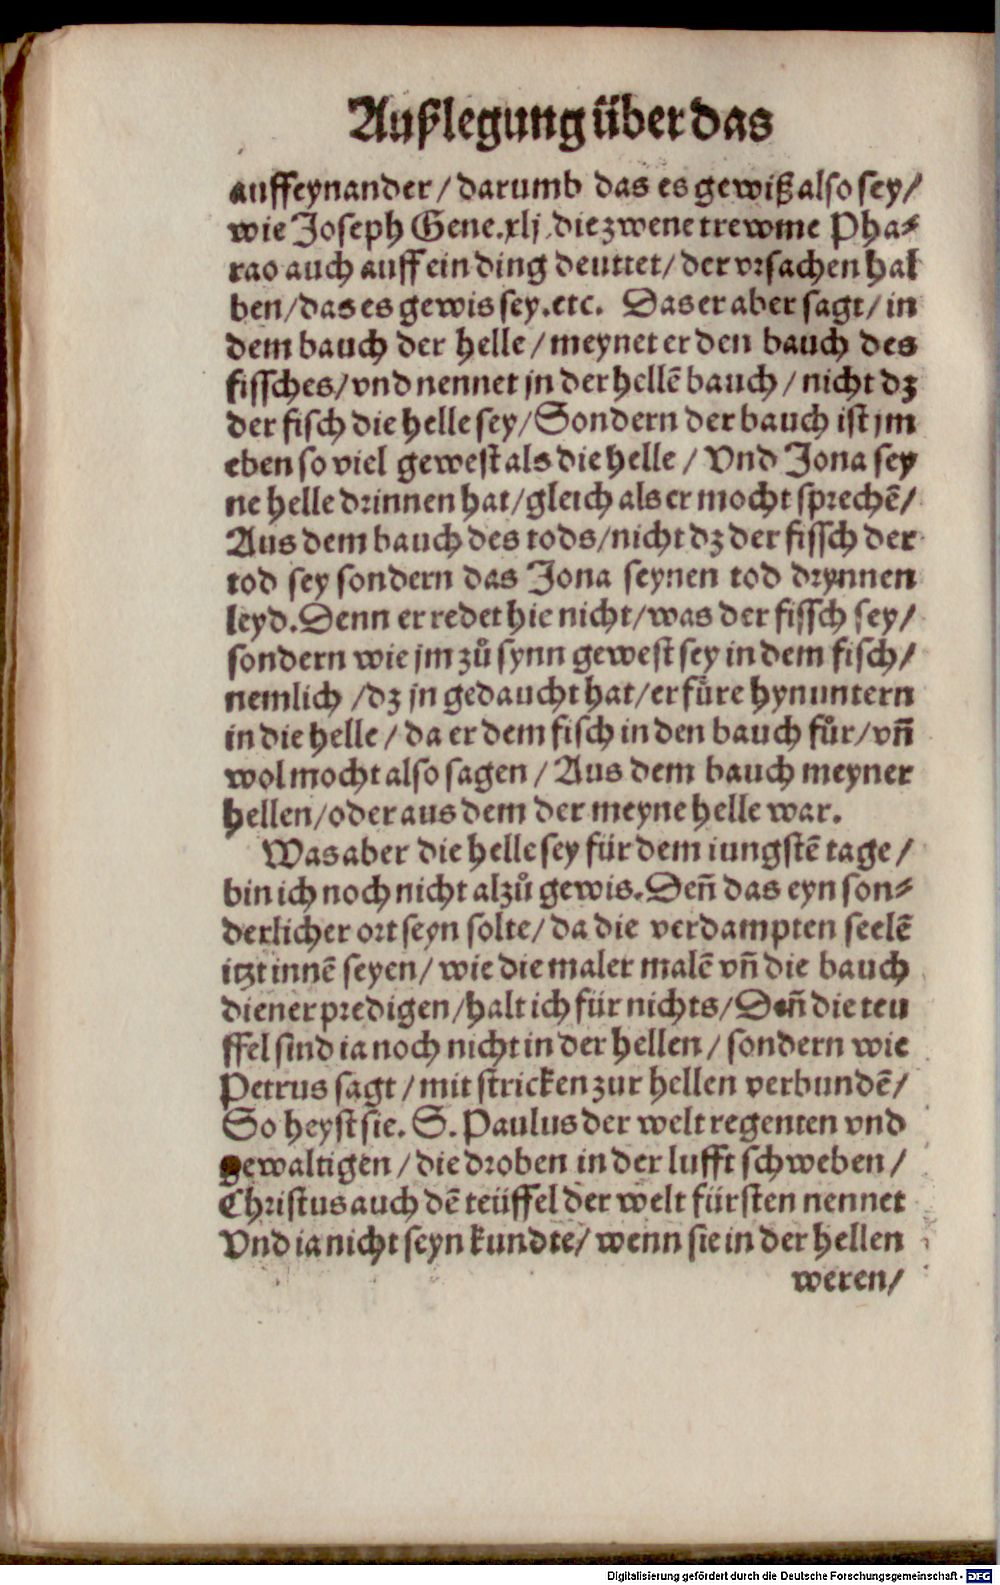 Außlegung über das
auffeynander / darumb das es gewiß also sey /
wie Joseph Gene. xlj. die zwene trewme Pha⸗
rao auch auff ein ding deuttet / der vrsachen hal
ben / das es gewis sey. etc. Das er aber sagt / in
dem bauch der helle / meynet er den bauch des
fissches / vnd nennet jn der hellē bauch / nicht dz
der fisch die helle sey / Sondern der bauch ist jm
eben so viel gewest als die helle / Vnd Jona sey
ne helle drinnen hat / gleich als er mocht sprechē /
Aus dem bauch des tods / nicht dz der fissch der
tod sey sondern das Jona seynen tod drynnen
leyd. Denn er redet hie nicht / was der fissch sey /
sondern wie jm zů synn gewest sey in dem fisch /
nemlich / dz jn gedaucht hat / er füre hynuntern
in die helle / da er dem fisch in den bauch fůr / vn̄
wol mocht also sagen / Aus dem bauch meyner
hellen / oder aus dem der meyne helle war.
Was aber die helle sey für dem iungstē tage /
bin ich noch nicht alzů gewis. Den̄ das eyn son⸗
derlicher ort seyn solte / da die verdampten seelē
itzt innē seyen / wie die maler malē vn̄ die bauch
diener predigen / halt ich für nichts / Den̄ die teu
ffel sind ia noch nicht in der hellen / sondern wie
Petrus sagt / mit stricken zur hellen verbundē /
So heyst sie. S. Paulus der welt regenten vnd
gewaltigen / die droben in der lufft schweben /
Christus auch dē teüffel der welt fürsten nennet
Vnd ia nicht seyn kundte / wenn sie in der hellen
weren /
Digitalisierung gefördert durch die Deutsche Forschungsgemeinschaft - DFG